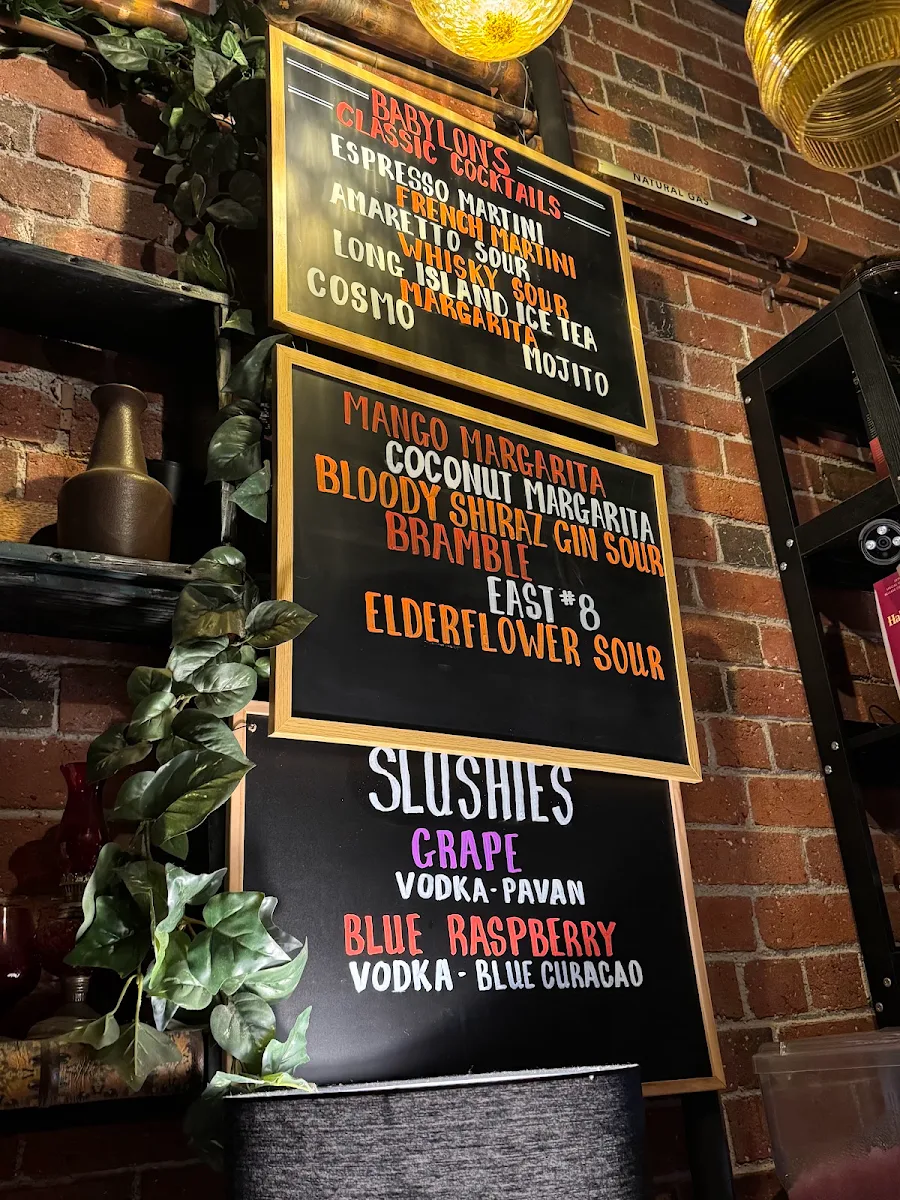 BABYLON'S
CLASSIC COCKTAILS
ESPRESSO MARTINI
FRENCH MARTINI
AMARETTO SOUR
WHISKY SOUR
LONG ISLAND ICE TEA
MARGARITA
COSMO
MOJITO
NATURAL GAS
MANGO MARGARITA
COCONUT MARGARITA
BLOODY SHIRAZ GIN SOUR
BRAMBLE
EAST #8
ELDERFLOWER SOUR
SLUSHIES
GRAPE
VODKA - PAVAN
BLUE RASPBERRY
VODKA - BLUE CURACAO